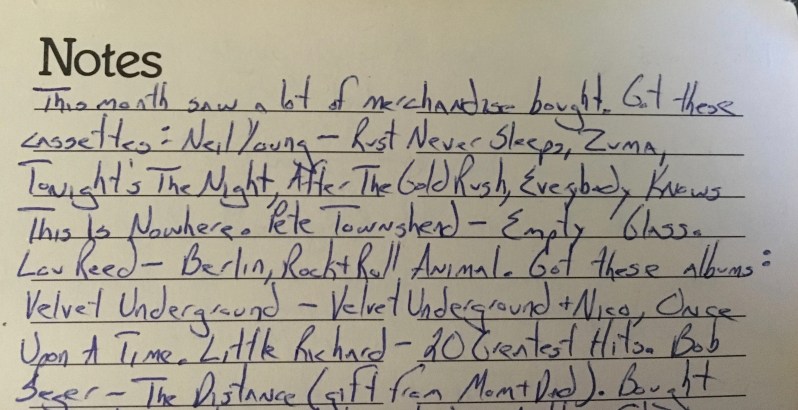 Notes
This month saw a lot of merchandise bought. Got these
cassettes: Neil Young - Rust Never Sleeps, Zuma,
Tonight's The Night, After The Gold Rush, Everybody Knows
This Is Nowhere. Pete Townshend - Empty Glass.
Lou Reed - Berlin, Rock + Roll Animal. Got these albums:
Velvet Underground - Velvet Underground + Nico, Once
Upon A Time. Little Richard - 20 Greatest Hits. Bob
Seger - The Distance (gift from Mom + Dad). Bought